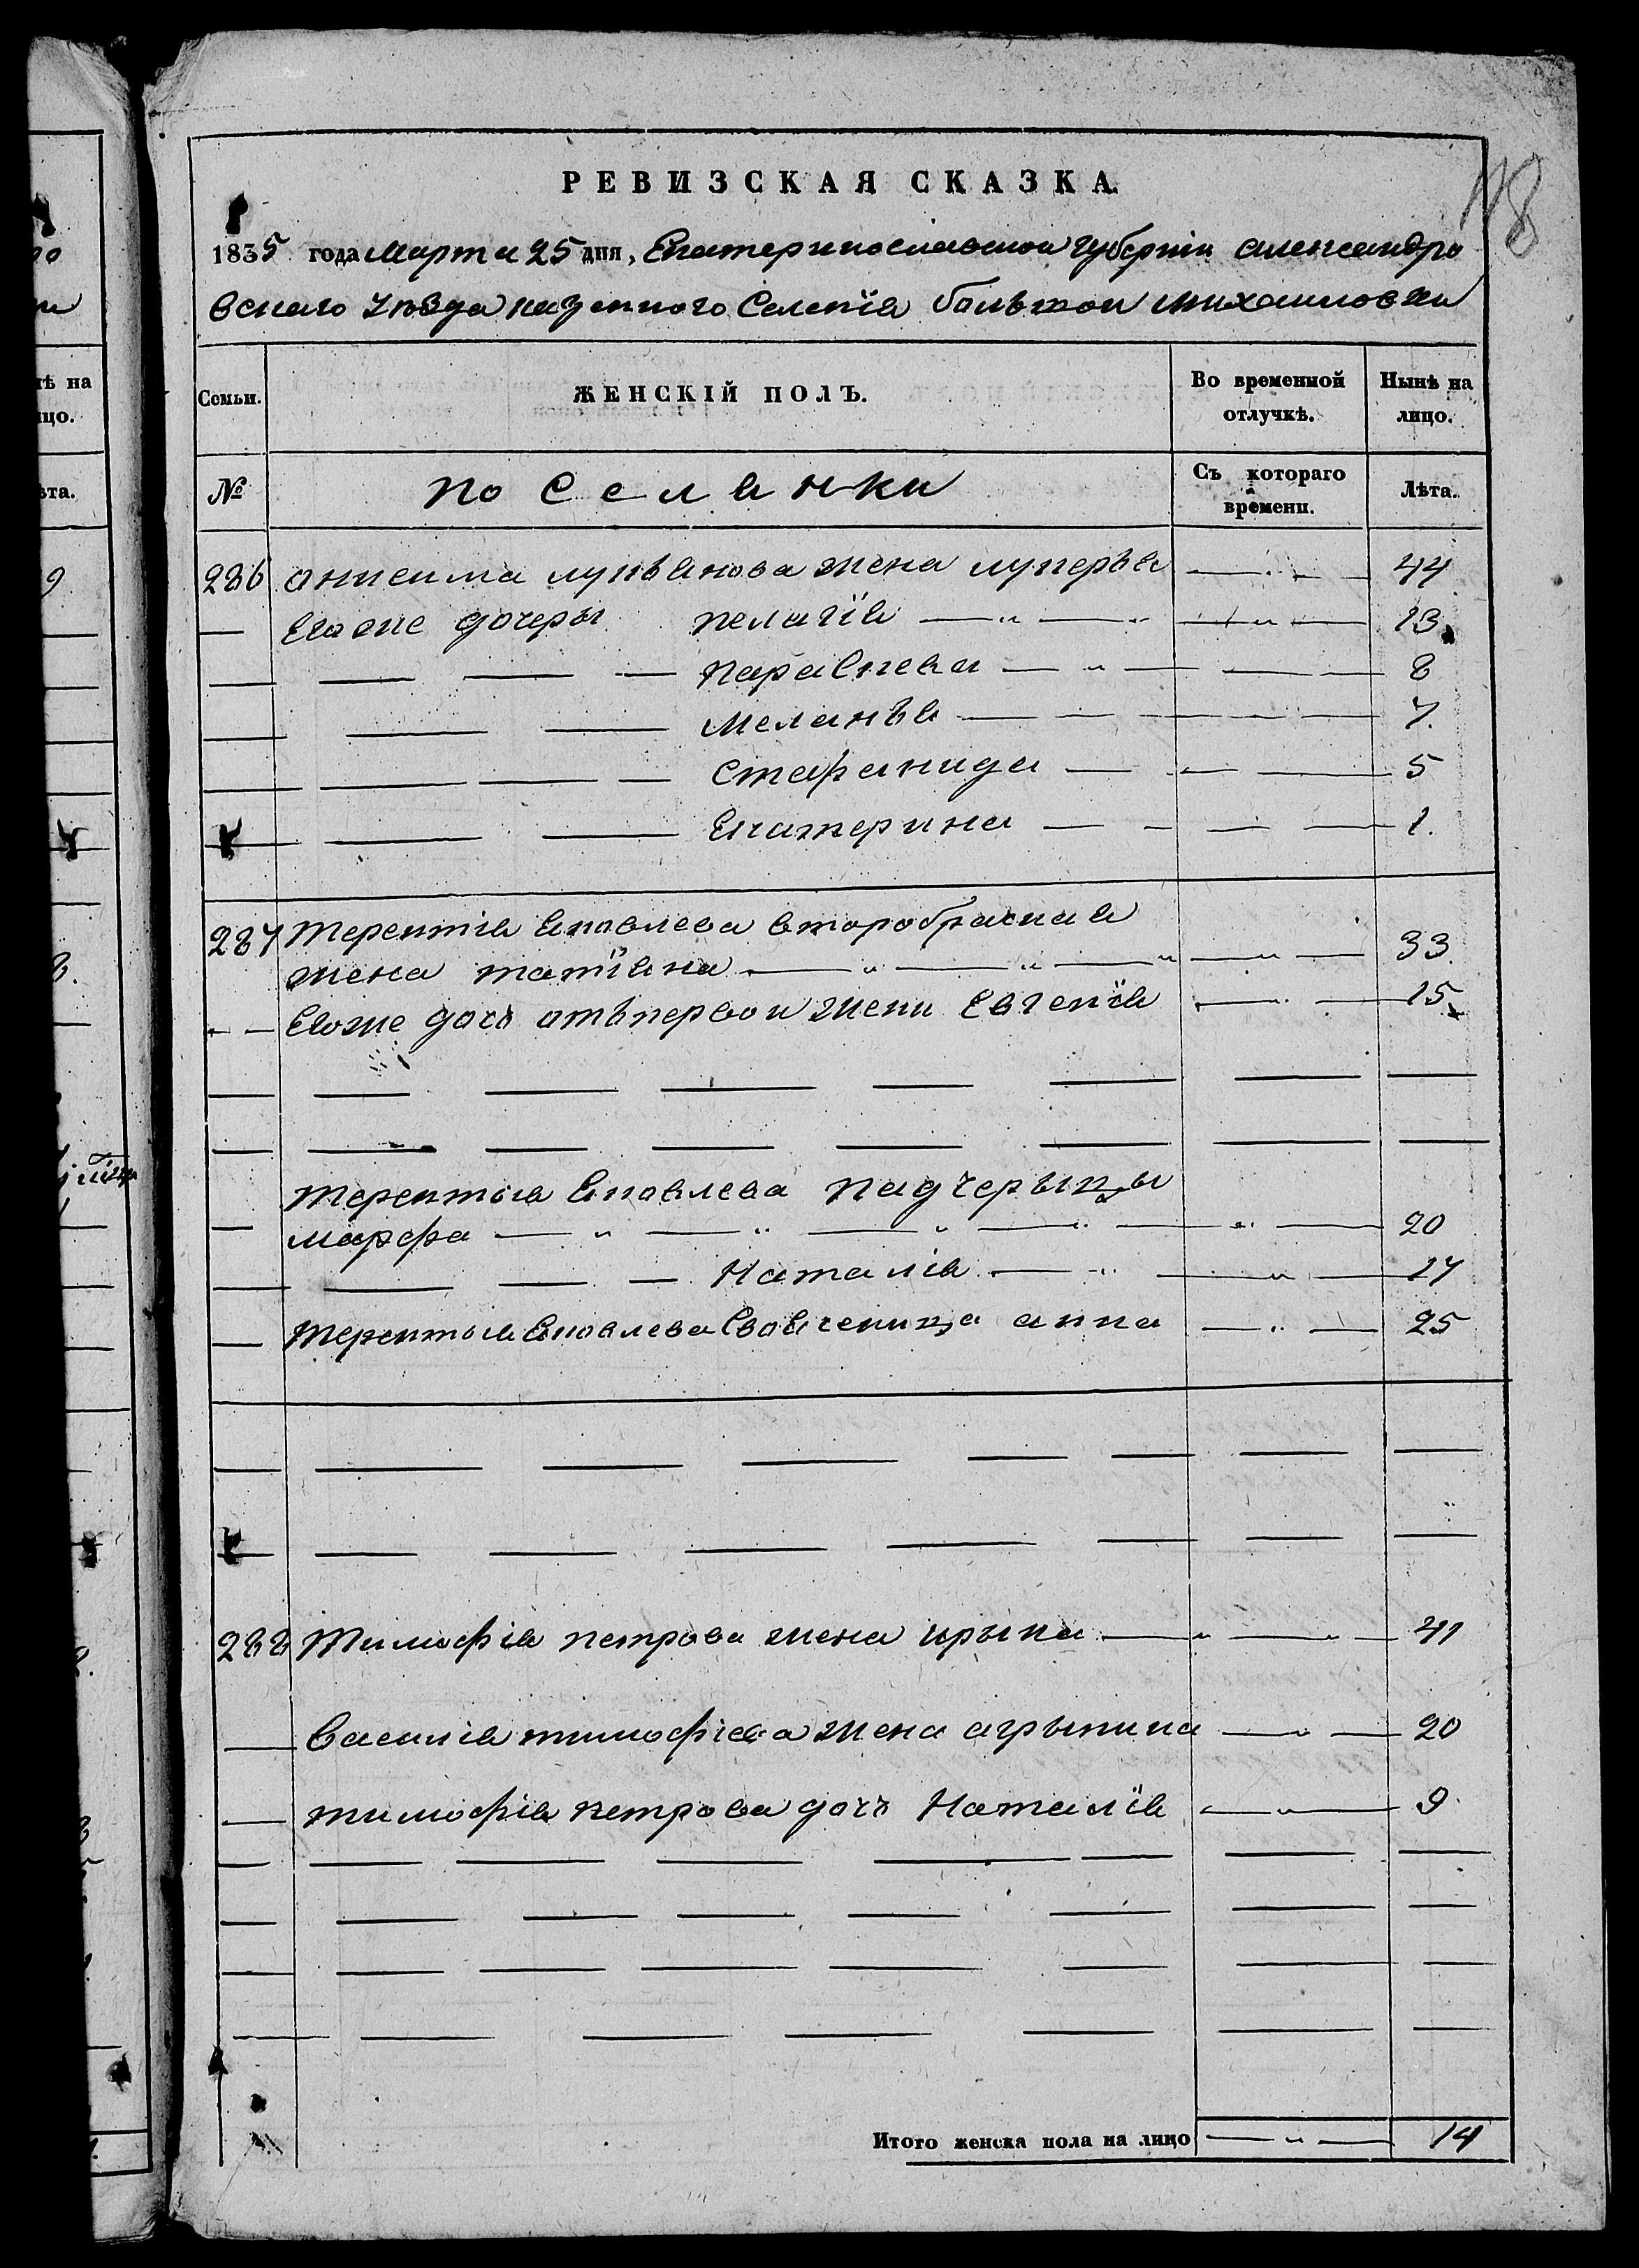 РЕВИЗСКАЯ СКАЗКА.
1835 года Марта 25 дня, Екатеринославской Губернии Александро
вскаго Уезда казенного Селения большой Михайловки
Семьи.
ЖЕНСКІЙ ПОЛЪ.
Во временной отлучкѣ.
Нынѣ на лицо.
№
поселянки
Съ котораго времени.
Лѣта.
286 анисима лукьянова жена лукерья 44
Его же дочеры пелагія 13
параскева 8
Меланья 7.
стефанида 5
Екатерина 1.
287 Терентія Яковлева второбрачная
жена татіяна 33.
Евоже дочь отъ первои жени Евгенія 15
Терентья Яковлева падчерыцы
марфа 20
Наталія 17
Терентья Яковлева Своячениця анна 25
288 Тимофія петрова жена ирына 41
Василія тимофіева жена агрыпина 20
тимофія петрова дочь Наталія 9
Итого женска пола на лицо 14